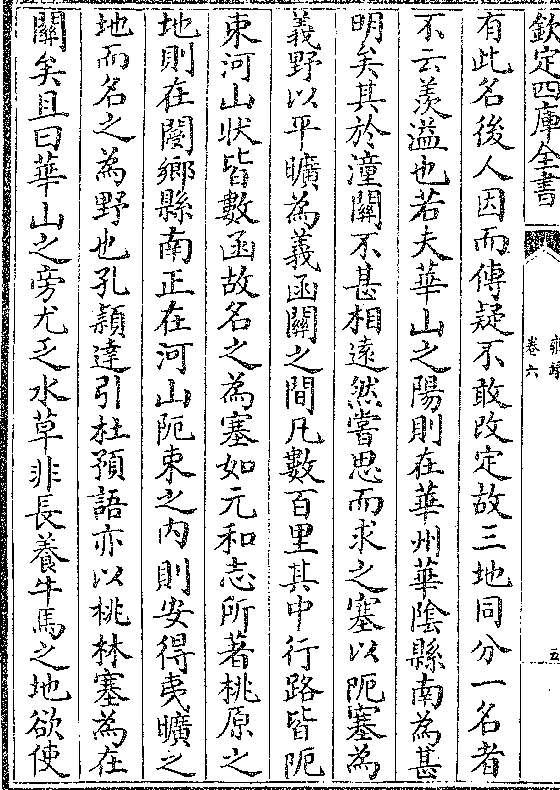 欽定四庫全書
卷六
五
有此名後人因而傳疑不敢改定故三地同分一名者
不云羨溢也若夫華山之陽則在華州華陰縣南為甚
明矣其於潼關不甚相遠然嘗思而求之塞以阨塞為
義野以平曠為義函關之間凡數百里其中行路皆阨
束河山狀皆數函故名之為塞如元和志所著桃原之
地則在閿鄉縣南正在河山阨束之内則安得夷曠之
地而名之為野也孔穎達引杜預語亦以桃林塞為在
關矣且曰華山之旁尤乏水草非長養牛馬之地欲使